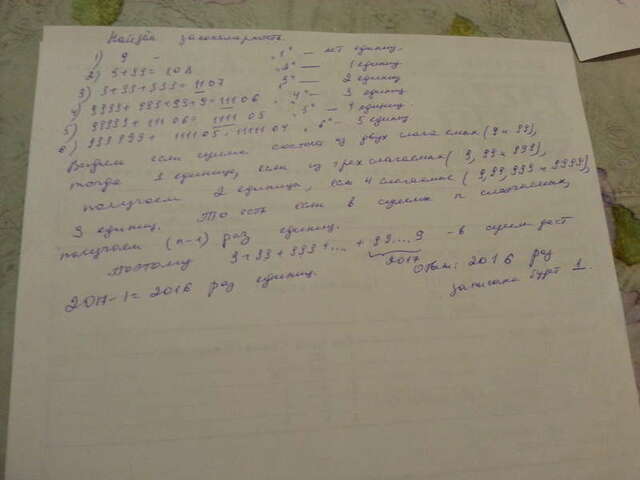 Найдём закономерность.
1) 9 - „1" — нет единиц.
2) 9+99= 108 „2" — 1 единиц
3) 9+99+999= 1107 „3" — 2 единиц
4) 9999+ 999+99+9=11106 „4" — 3 единиц
5) 99999+ 11106= 111105 „5" — 4 единиц.
6) 999 999+ 111105=1111104 „6" — 5 единиц
Видим если сумма состоит из двух слагаемых (9 и 99),
тогда 1 единица, если из трех слагаемых (9, 99 и 999),
получаем 2 единицы, если 4 слагаемые (9,99,999 и 9999),
3 единиц. То есть если в сумме n слагаемых,
получаем (n-1) раз единиц.
Поэтому 9+99+999+...+99...9 - в сумме даст
2017
2017-1=2016 раз единиц.
Ответ: 2016 раз
записана будет 1.